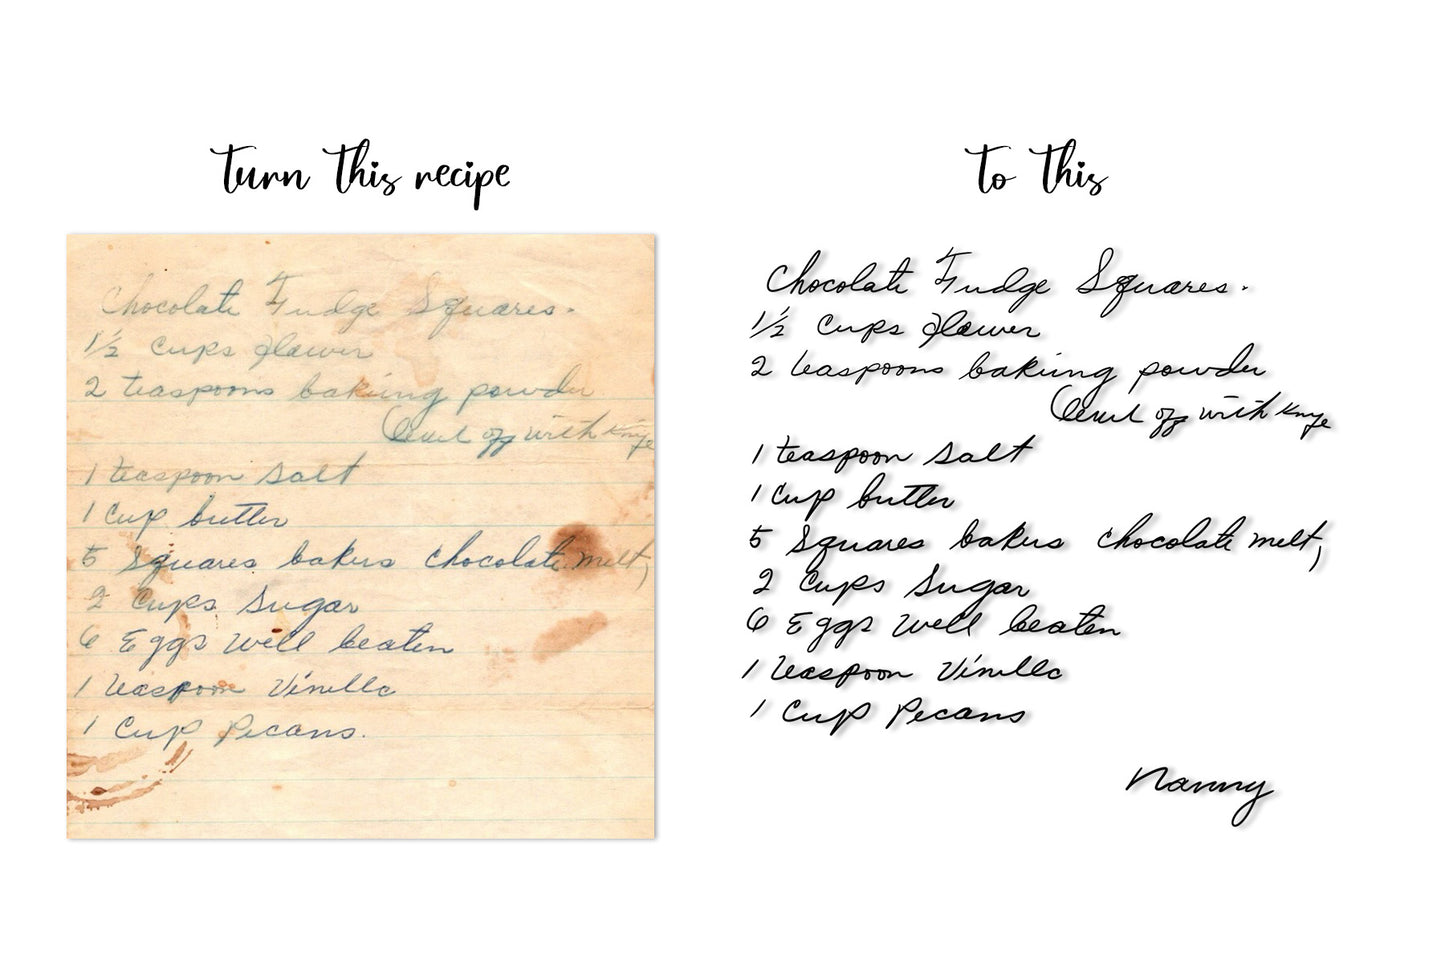 turn this recipe
Chocolate Fudge Squares.
1½ Cups flower
2 teaspoons baking powder
level off with knife
1 teaspoon salt
1 Cup butter
5 Squares bakers chocolate melt,
2 Cups Sugar
6 Eggs well beaten
1 teaspoon Vinella
1 Cup Pecans.
to this
Chocolate Fudge Squares.
1½ Cups flower
2 teaspoons baking powder
level off with knife
1 teaspoon salt
1 Cup butter
5 Squares bakers chocolate melt,
2 Cups Sugar
6 Eggs well beaten
1 teaspoon Vinella
1 Cup Pecans
Nanny